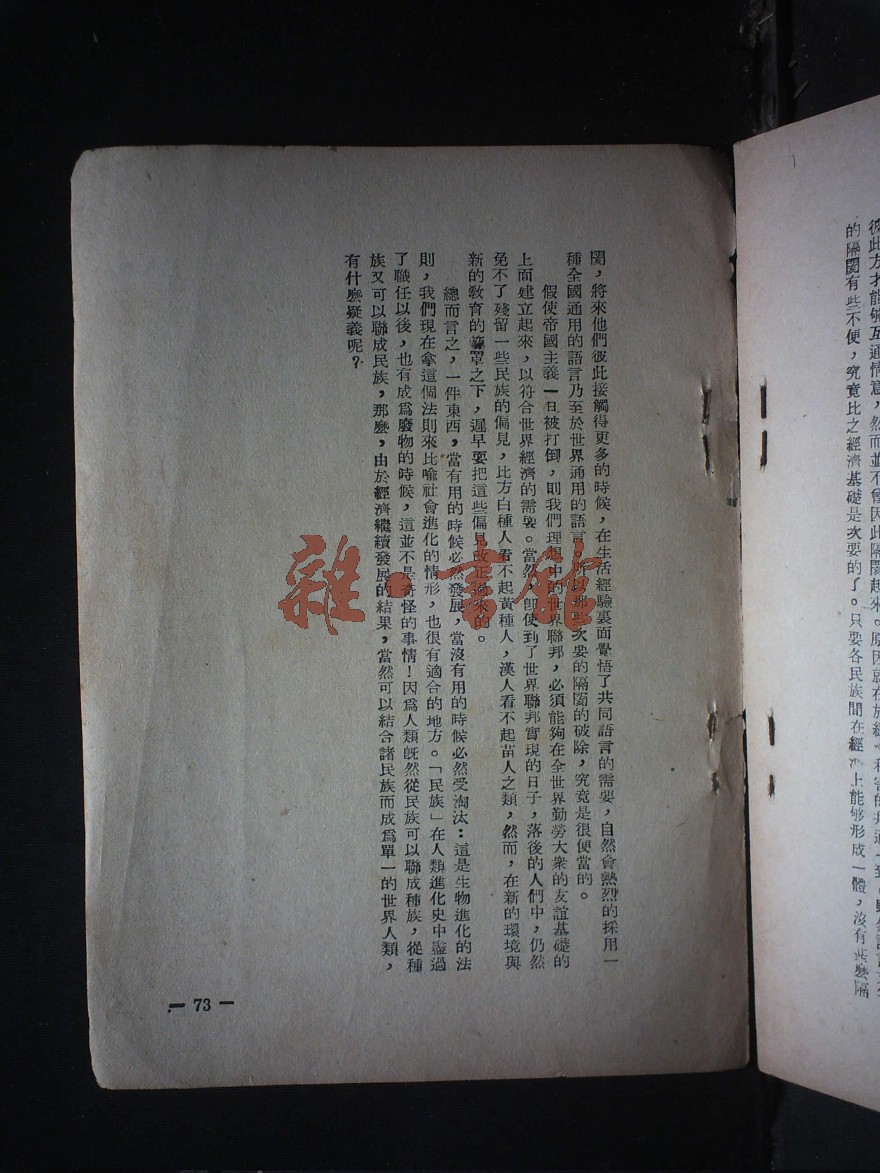 彼此方才能够互通情意，然而並不曾因此隔閡起來。原因就在於經
的隔閡有些不便，究竟比之經濟基礎是次要的了。只要各民族間在經 上能够形成一體，沒有甚麼隔
閡，將來他們彼此接觸得更多的時候，在生活經驗裏面覺悟了共同語言的需要，自然會熱烈的採用一
種全國通用的語言乃至於世界通用的語言。所以那些次要的隔閡的破除，究竟是很便當的。
假使帝國主義一旦被打倒，則我們理想中的世界聯邦，必須能夠在全世界勤勞大衆的友誼基礎的
上面建立起來，以符合世界經濟的需要。當然，卽使到了世界聯邦實現的日子，落後的人們中，仍然
免不了殘留一些民族的偏見，比方白種人看不起黃種人，漢人看不起苗人之類，然而，在新的環境與
新的敎育的籠罩之下，遲早要把這些偏見改正過來的。
總而言之，一件東西，當有用的時候必然發展，當沒有用的時候必然受淘汰：這是生物進化的法
則，我們現在拿這個法則來比喻社會進化的情形，也很有適合的地方。「民族」在人類進化史中盡過
了職任以後，也有成爲廢物的時候，這並不是奇怪的事情！因爲人類旣然從民族可以聯成種族，從種
族又可以聯成民族，那麼，由於經濟繼續發展的結果，當然可以結合諸民族而成爲單一的世界人類，
有什麼疑義呢？
— 73 —
雜·書館